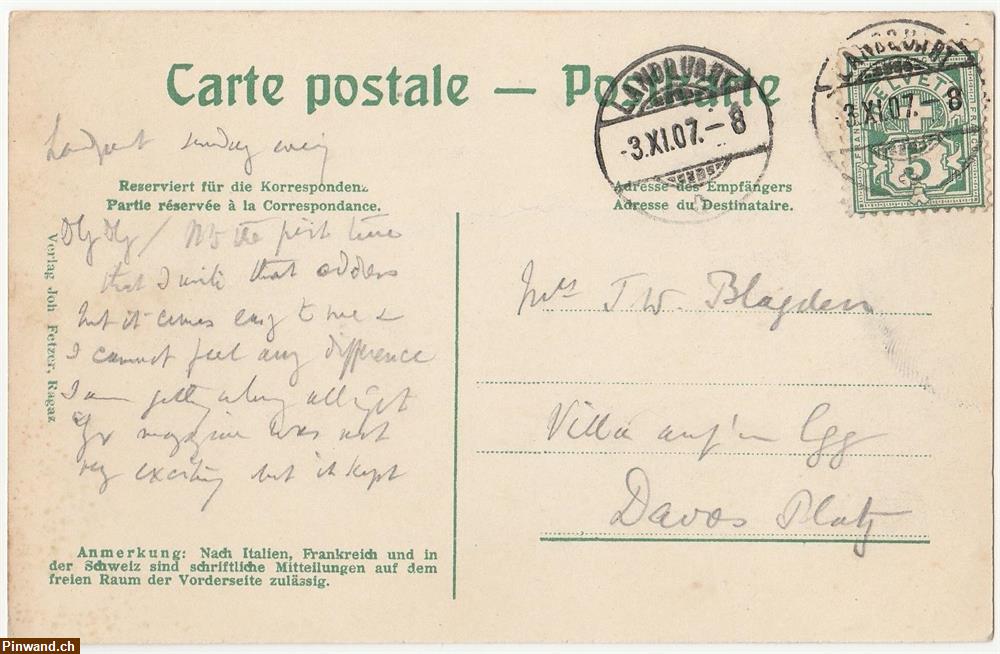 Carte postale — Postkarte
LANDQUART
-3.XI.07.-8
LANDQUART
-3.XI.07.-8
HELVETIA
5
Landquart Sunday evening
Reserviert für die Korrespondenz
Partie réservée à la Correspondance.
Adresse des Empfängers
Adresse du Destinataire.
the first time
that I write that address
but it comes easy to me &
I cannot feel any difference
I am getting along all right
Yr magazine was not
very exciting but it kept
Verlag Joh Fetzer, Ragaz
Mrs T W. Blagden
Villa auf'm Egg
Davos Platz
Anmerkung: Nach Italien, Frankreich und in
der Schweiz sind schriftliche Mitteilungen auf dem
freien Raum der Vorderseite zulässig.
Pinwand.ch